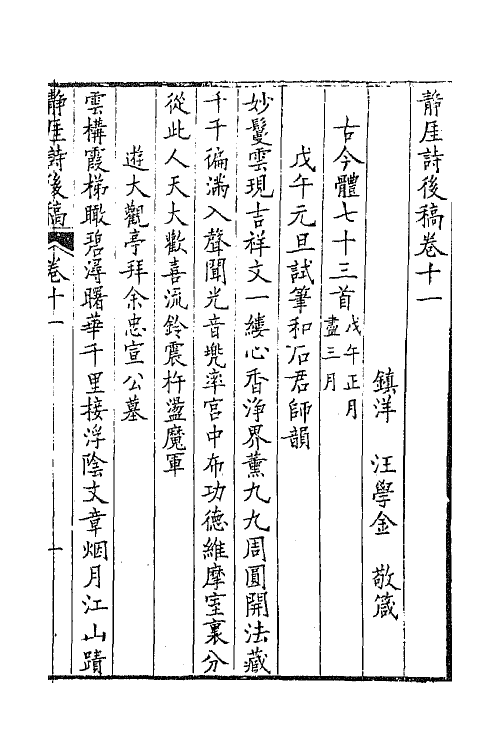 靜厓詩後稿卷十一
鎮洋　汪學金　敬箴
古今體七十三首戊午正月盡三月
戊午元旦試筆和石君師韻
妙鬘雲現吉祥文一縷心香淨界薰九九周圓開法藏
千千徧滿入聲聞光音兠率宮中布功德維摩室裏分
從此人天大歡喜流鈴震杵盪魔軍
遊大觀亭拜余忠宣公墓
雲構霞梯瞰碧潯曙華千里接浮陰文章烟月江山蹟
靜厓詩後稿　卷十一　一